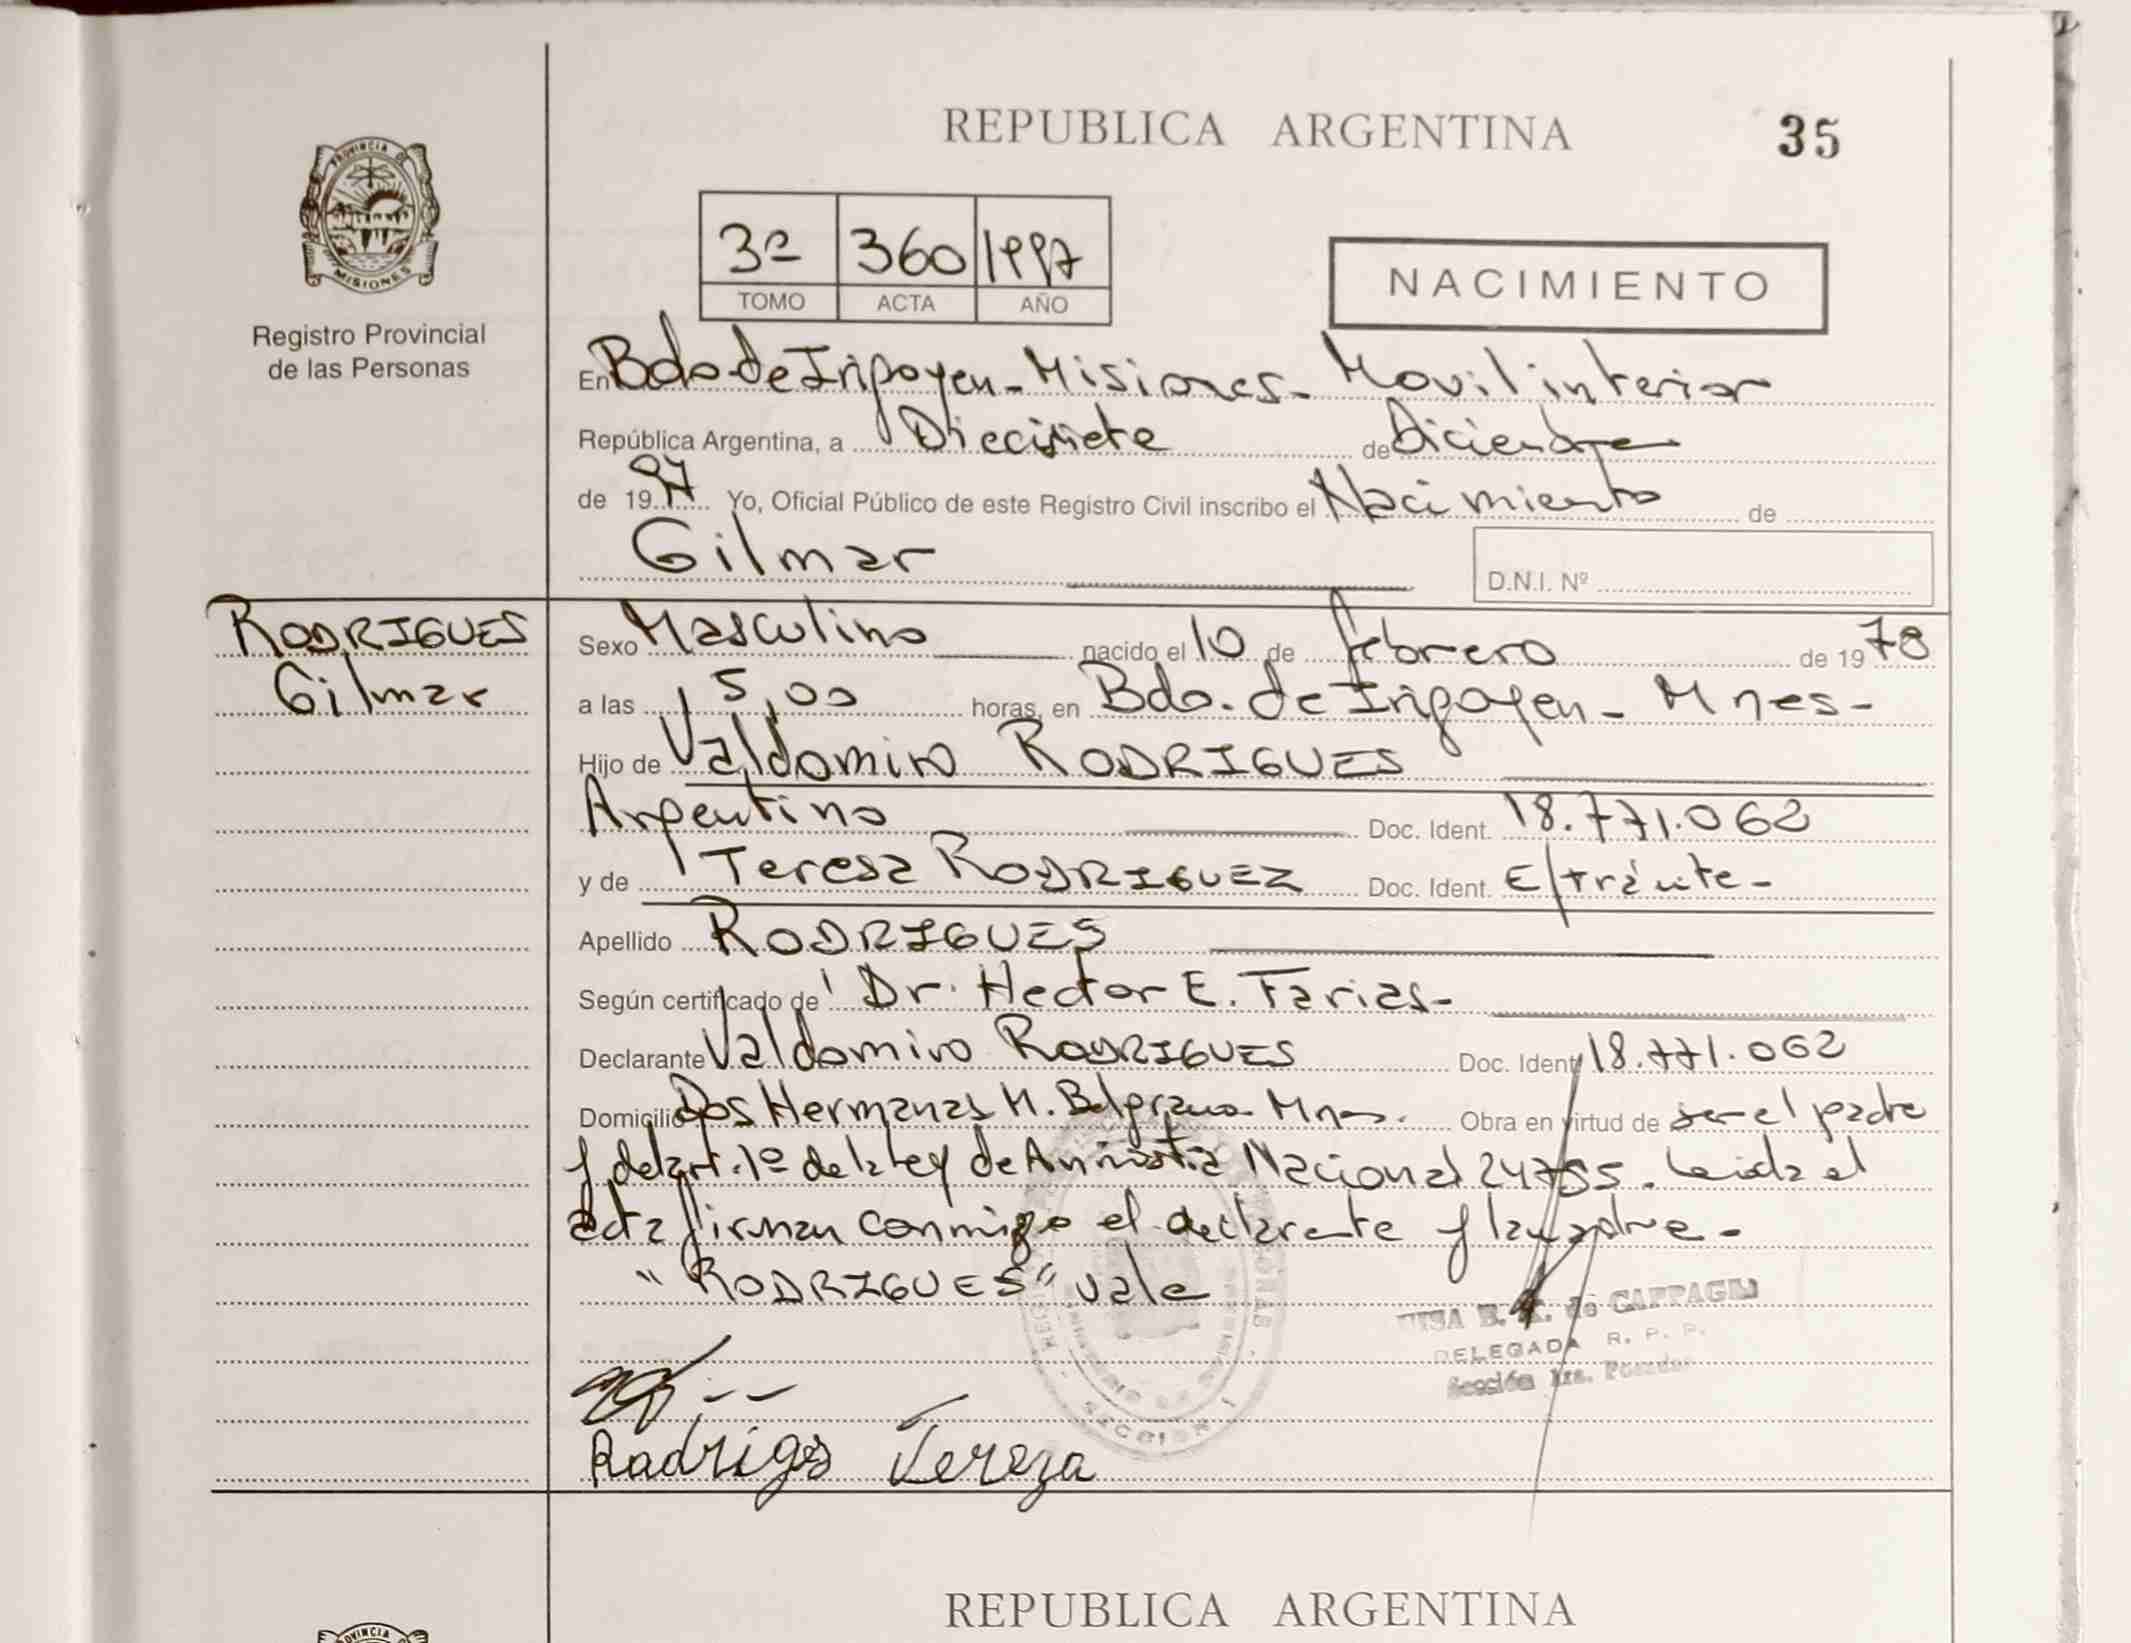 REPUBLICA ARGENTINA 35
PROVINCIA DE MISIONES
Registro Provincial
de las Personas
3º 360 1997
TOMO ACTA AÑO
NACIMIENTO
En Bdo. de Irigoyen - Misiones - Movil interior
República Argentina, a Diecisiete de Diciembre
de 1997 Yo, Oficial Público de este Registro Civil inscribo el Nacimiento de
Gilmar D.N.I. Nº
RODRIGUES
Gilmar
Sexo Masculino nacido el 10 de febrero de 1978
a las 5,00 horas, en Bdo. de Irigoyen - Mnes -
Hijo de Valdomiro RODRIGUES
Argentino Doc. Ident. 18.771.062
y de Teresa RODRIGUEZ Doc. Ident. E/tránte -
Apellido RODRIGUES
Según certificado de Dr. Hector E. Farias -
Declarante Valdomiro RODRIGUES Doc. Ident. 18.771.062
Domicilio Dos Hermanas M. Belgrano - Mnes. Obra en virtud de ser el padre
y del art. 1º de la Ley de Amnistia Nacional 24755. Leida el
acta firman conmigo el declarante y la madre -
"RODRIGUES" vale
B. de CAPPAGLI
DELEGADA R. P. P.
Sección 1ra. Posadas
SECCION 1
Radrigs Tereza
REPUBLICA ARGENTINA